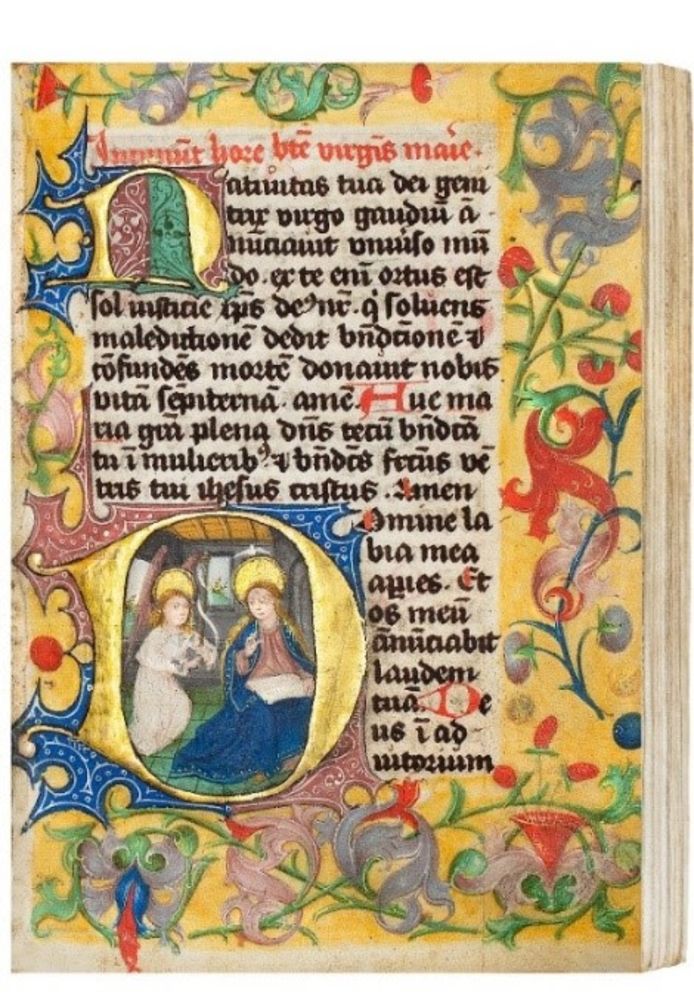 Incipiūt hore btē virgīs marie.
Nativitas tua dei geni
trix virgo gaudiū ā
nūciavit vniuso mū
do. ex te enī ortus est
sol iusticie xp̄s deꝰ nr̄. q̄ soluens
maledictionē dedit bn̄dctionē ⁊
cōfundēs mortē donauit nobis
vitā sēpiternā. amē. Aue ma
ria grā plena dn̄s tecū bn̄dcā
tu ī mulierib⁹ ⁊ bn̄dcs̄ fctūs vē
tris tui ihesus cristus. Amen
Domine la
bia mea
apies. Et
os meū
ānūciabit
laudem
tuā. De
us ī ad
iutorium